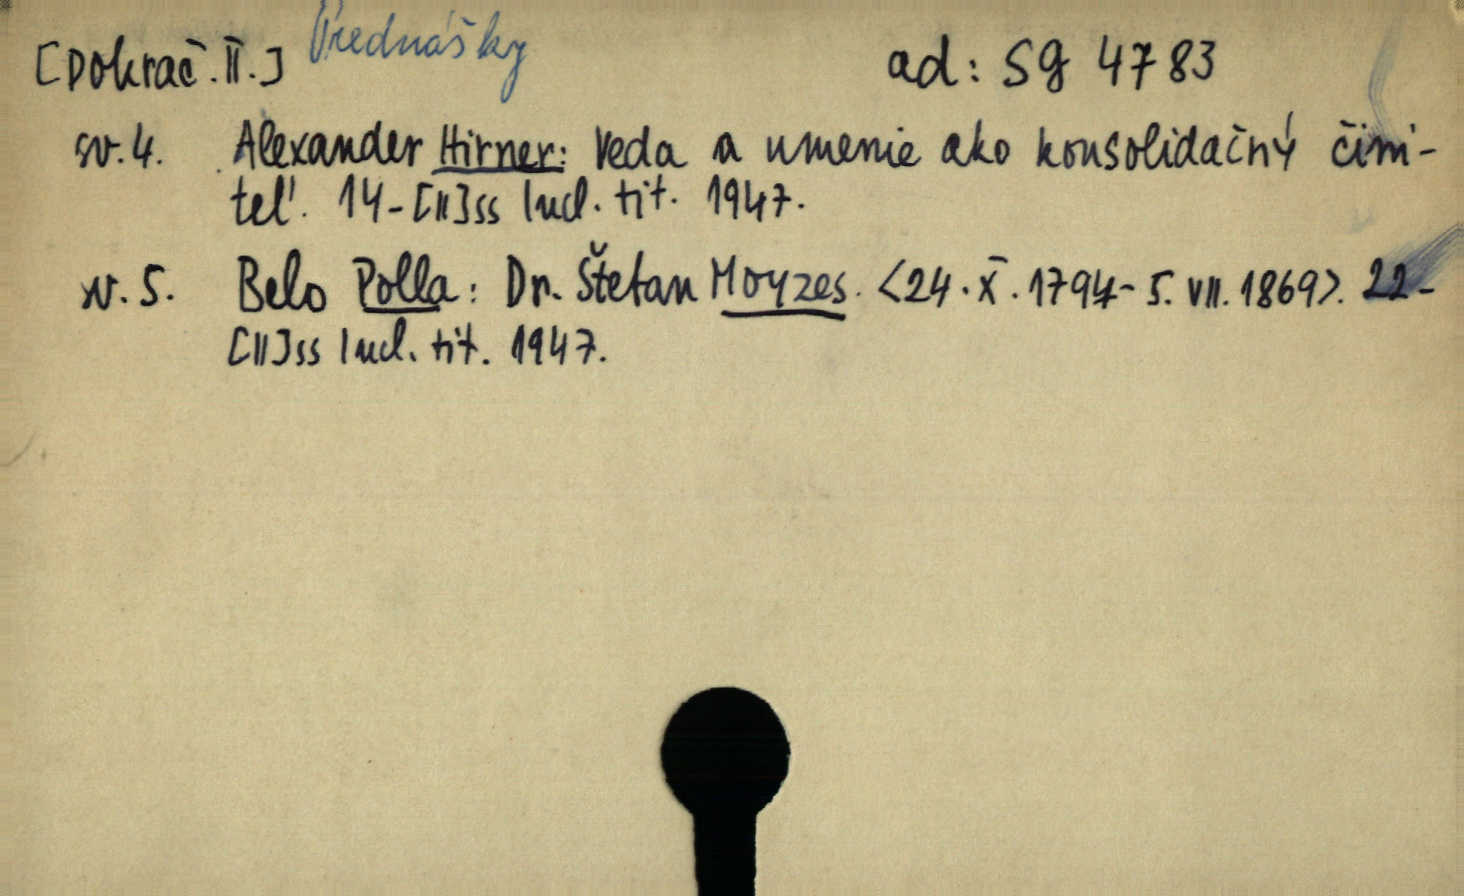 [Dokrač. II.] Prednášky ad: SG 4783
sv. 4. Alexander Hirner: Veda a umenie ako konsolidačný čini-
teľ. 14-[II]ss Incl. tit. 1947.
sv. 5. Belo Polla: Dr. Štefan Moyzes. <24. X. 1794- 5. VII. 1869>. 22-
[II]ss Incl. tit. 1947.